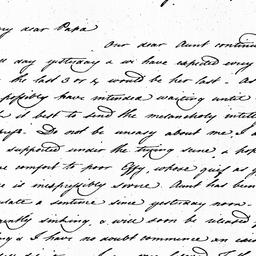 my dear Papa
Our dear Aunt continu
ll day yesterday & we have expected every
the last 3 or 4 would be her last. As
possibly have intended waiting until
it best to send the melancholy intell
Do not be uneasy about me, I a
supported under the trying scene, & hop
comfort to poor Effy, whose grief as y
is inexpressibly sore. Aunt has been
ulate a sentence since yesterday noon.
ently sinking, & will soon be released f
& I have no doubt commence an ear